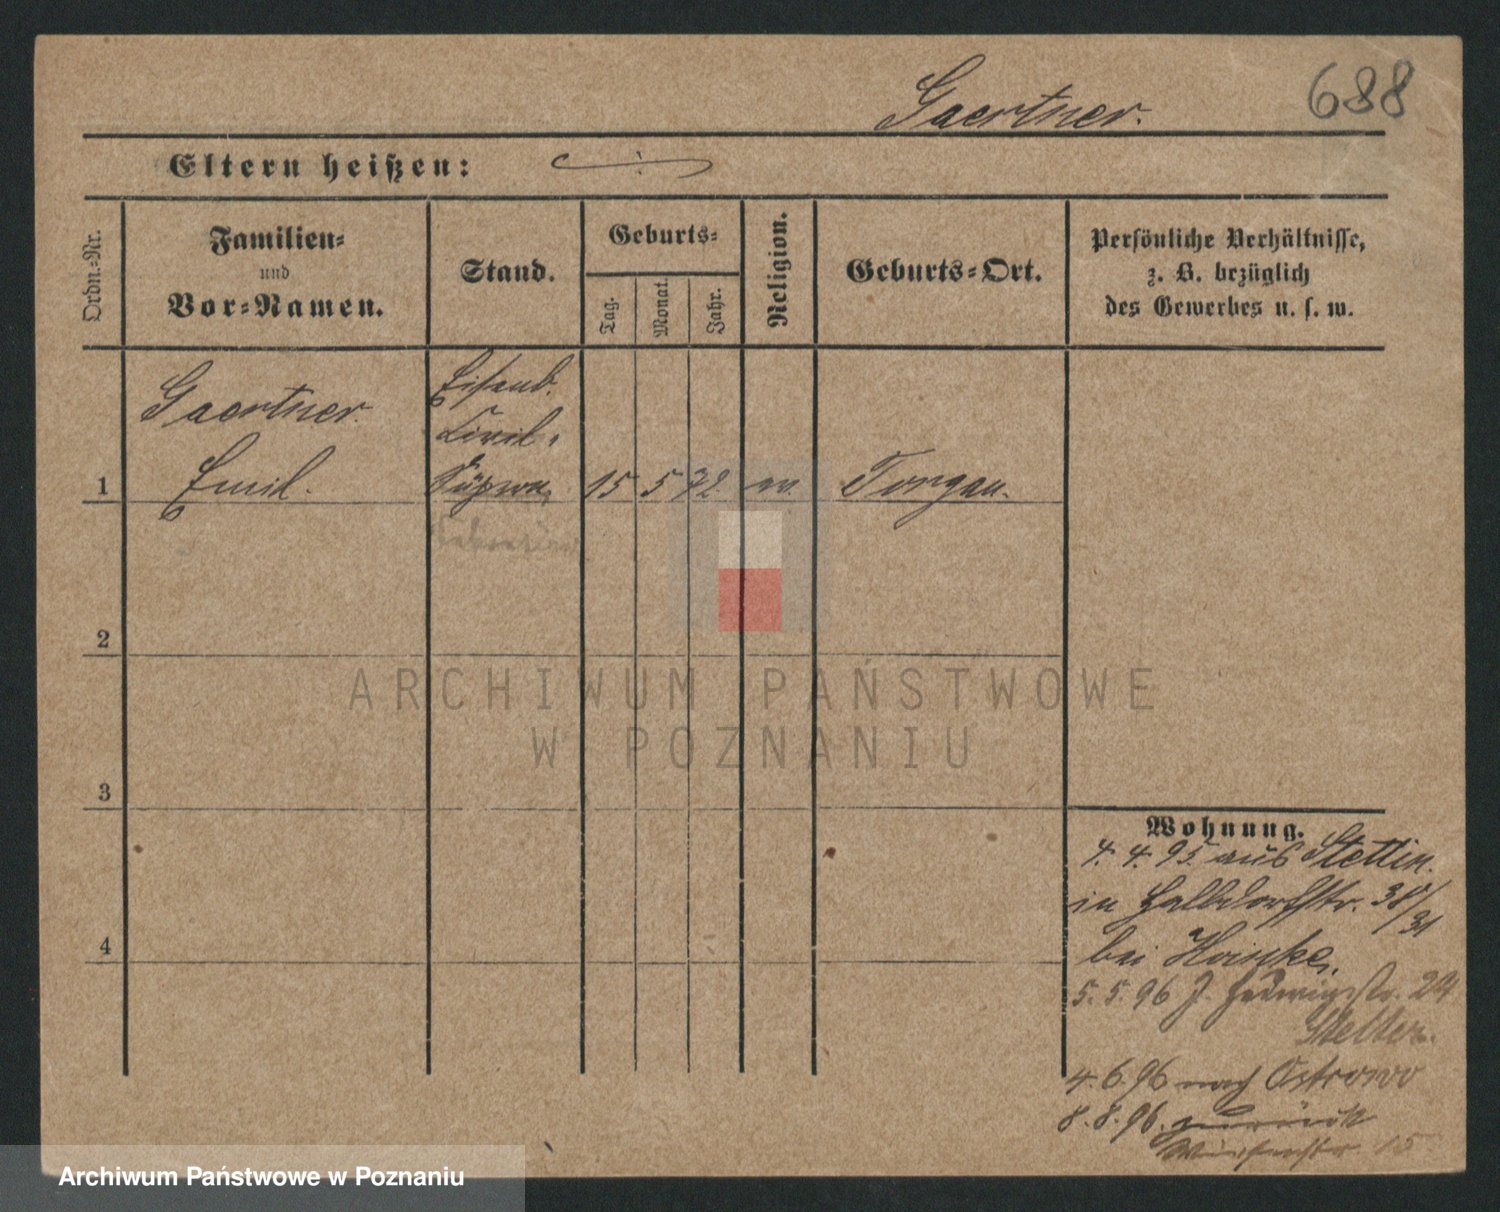 688
Gaertner.
Eltern heißen:
Ordn.-Nr.
Familien-
und
Vor-Namen.
Stand.
Geburts-
Tag.
Monat.
Jahr.
Religion.
Geburts-Ort.
Persönliche Verhältnisse,
z. B. bezüglich
des Gewerbes u. s. w.
Gaertner.
Emil.
Eisenb.
Civil-
1
15
5
72.
ev.
Torgau.
2
3
4
Wohnung.
4. 4. 95. aus Stettin.
in Halbdorfstr. 38/31
bei
5. 5. 96 Hedwigstr. 24
4. 6. 96 nach Ostrowo
8. 8. 96. zurück
15
ARCHIWUM PAŃSTWOWE
W POZNANIU
Archiwum Państwowe w Poznaniu